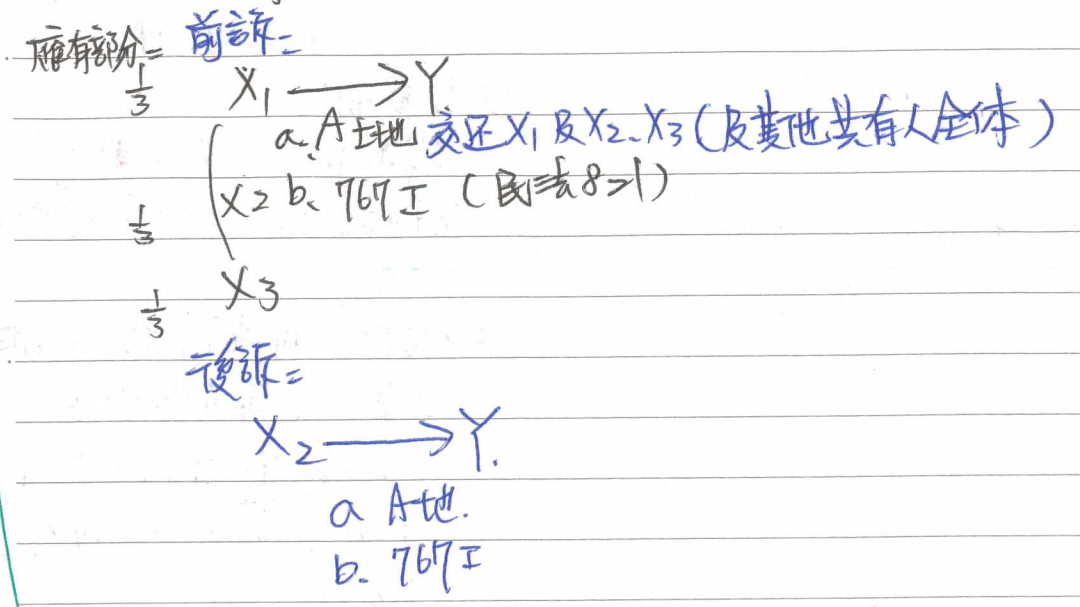 應有部分= 前訴=
1/3 X1 → Y
a、A土地 交还X1及X2、X3(及其他共有人全体)
1/3 X2 b、767I (民法821)
1/3 X3
後訴=
X2 → Y.
a A地.
b. 767I